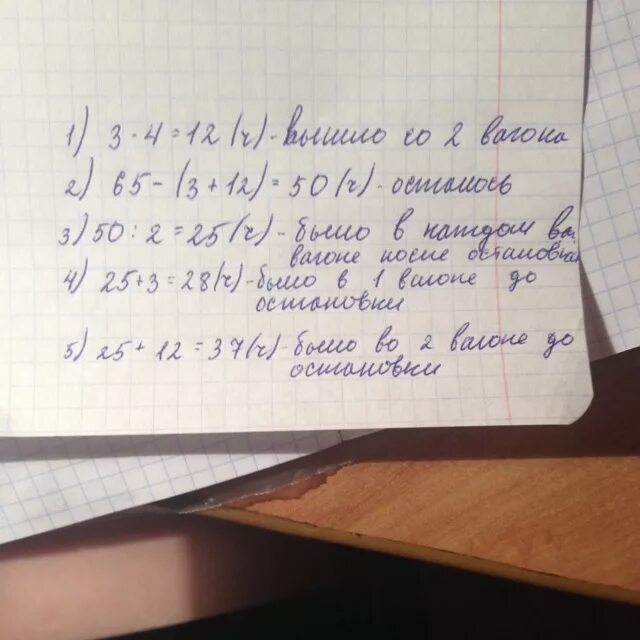 1) 3 · 4 = 12 (ч) - вышло со 2 вагона
2) 65 - (3 + 12) = 50 (ч) - осталось
3) 50 : 2 = 25 (ч) - было в каждом ва
вагоне после остановки
4) 25 + 3 = 28 (ч) - было в 1 вагоне до
остановки
5) 25 + 12 = 37 (ч) - было во 2 вагоне до
остановки